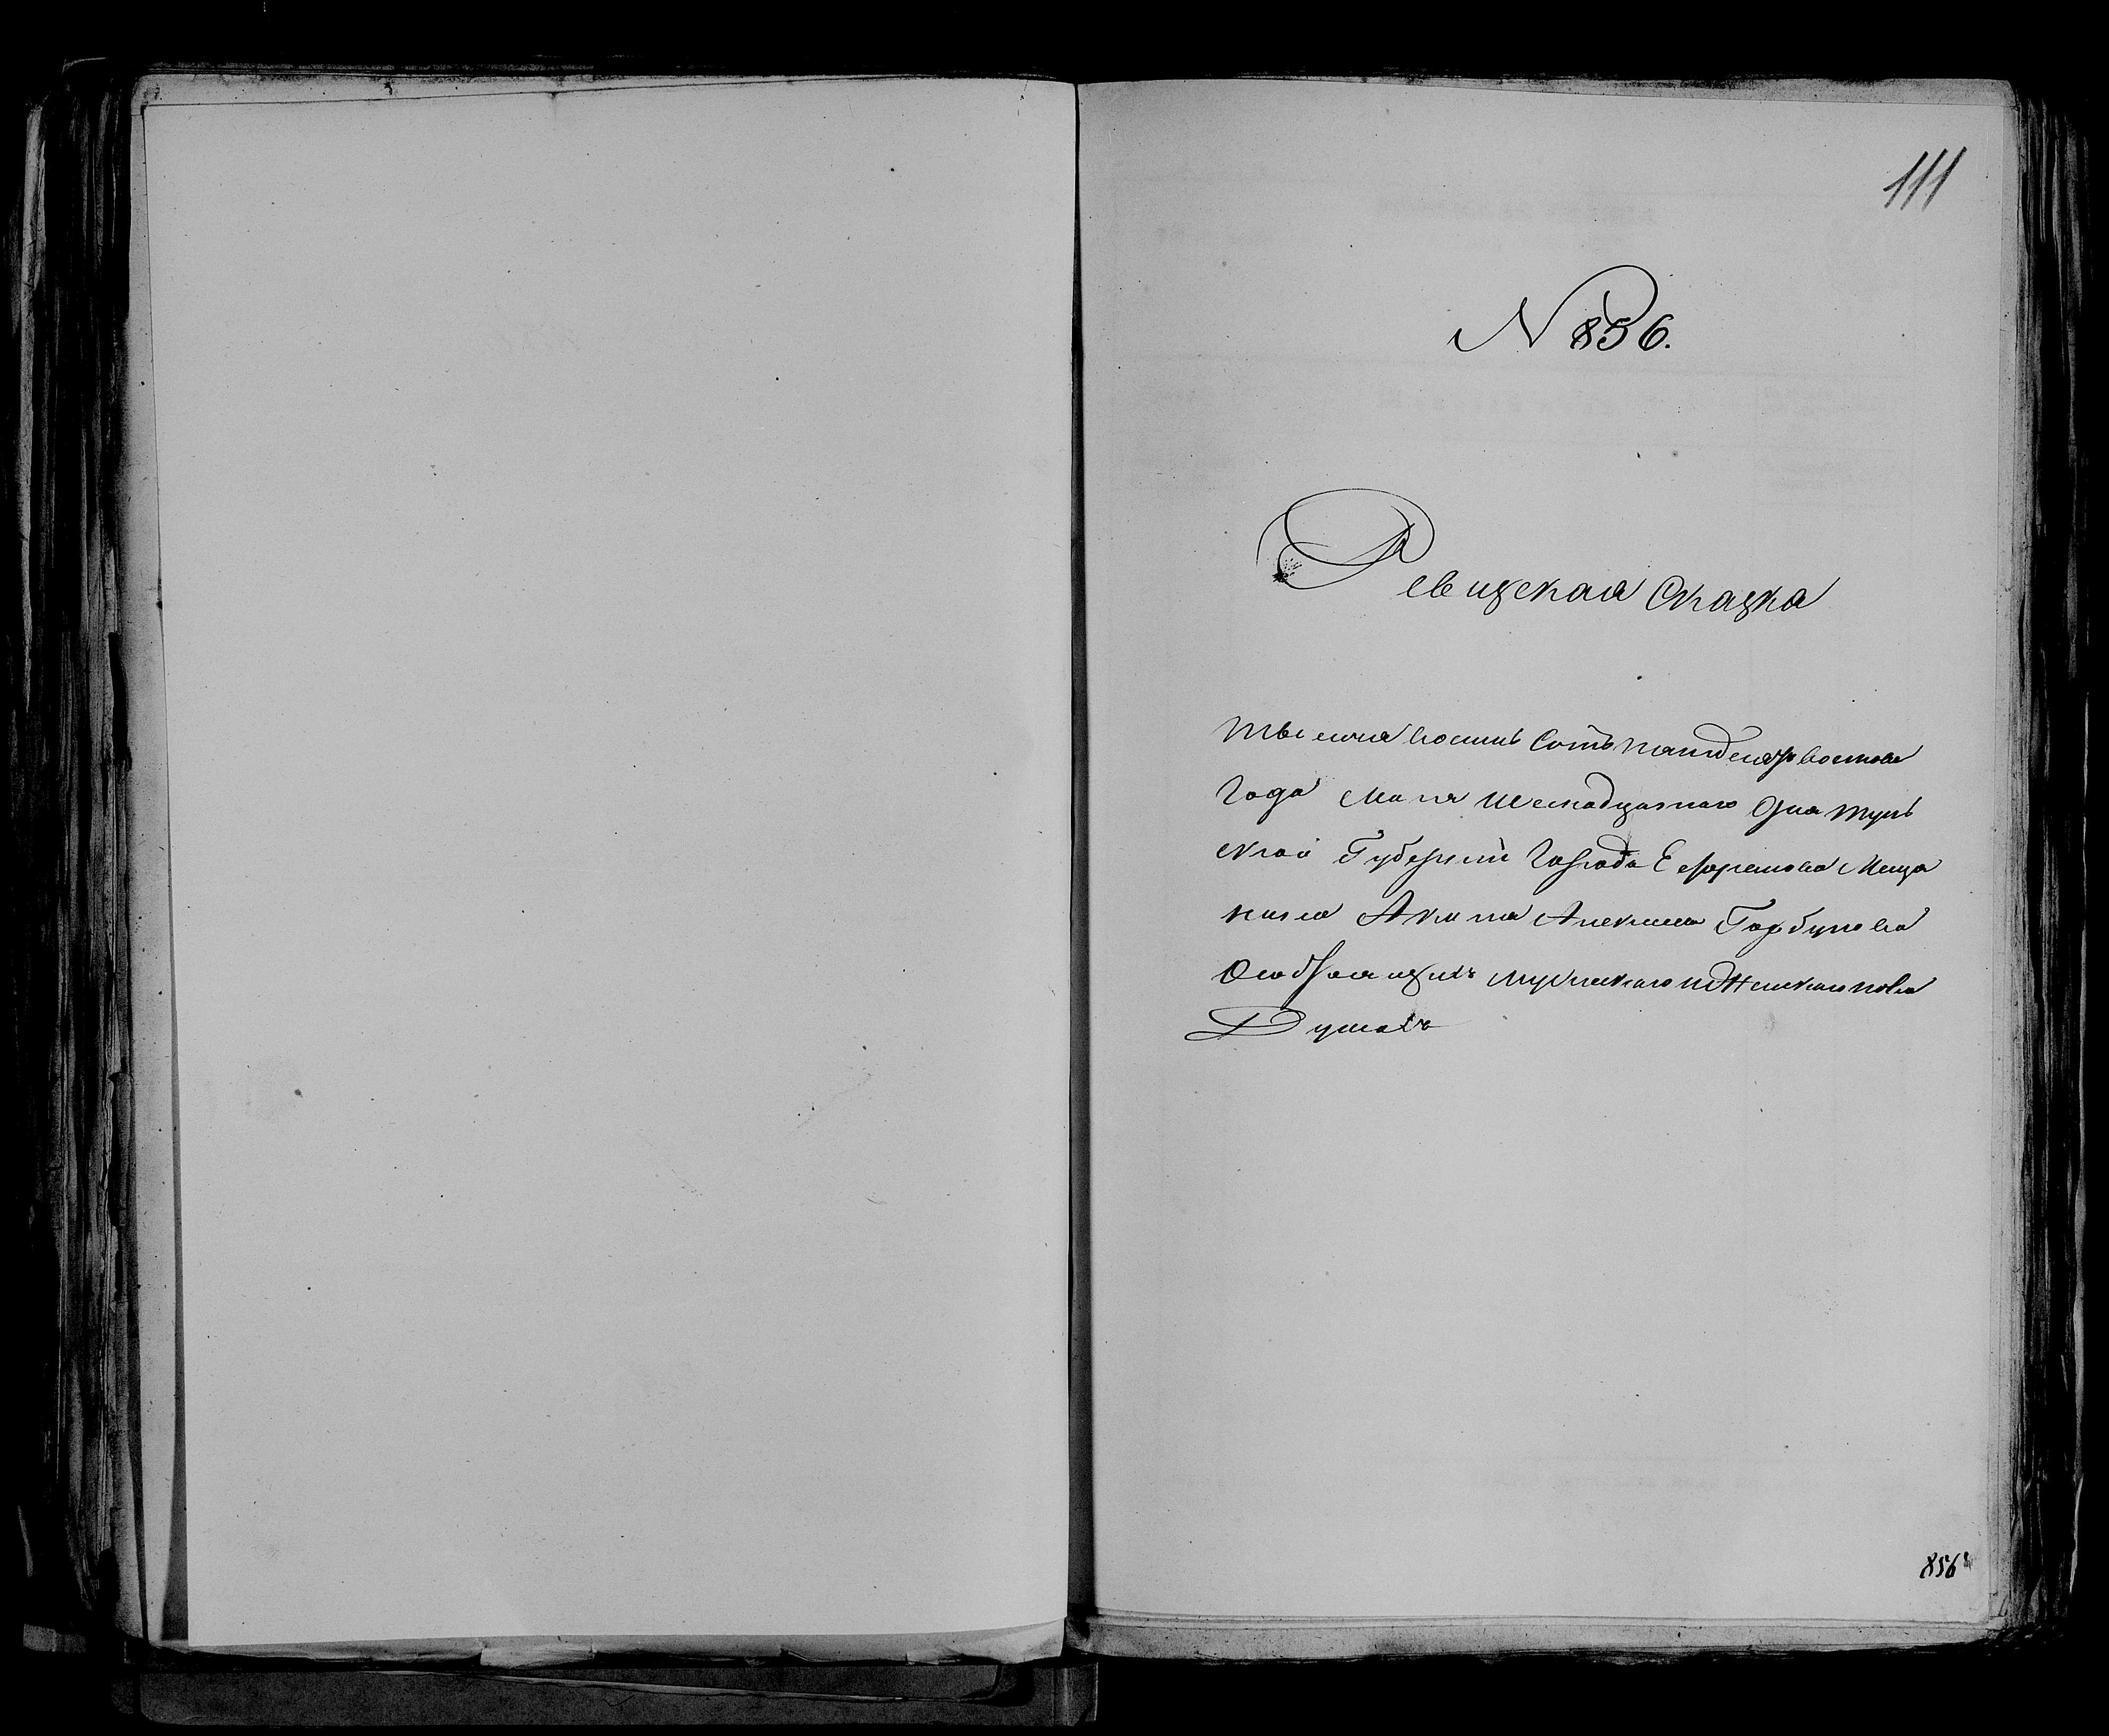 111
N 856.
Ревизская Сказка
тысяча восемь Сотъ пятидесятъ восмова
Года Маия шеснадцатаго Дня туль
ской Губернии Города Ефремова Мещa
нина Акима Алексеева Горбунова
Особразящихъ мужескаго и Женскаго пола
Душахъ
856